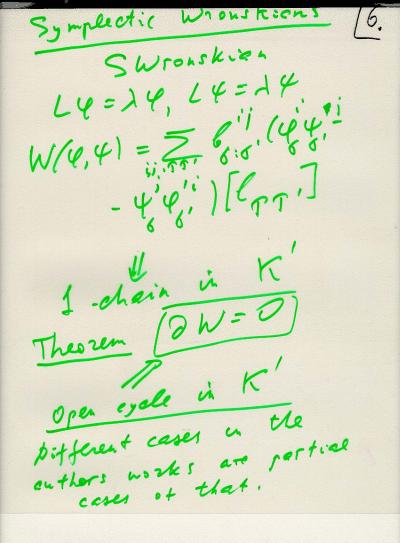 Symplectic Wronskians
6.
SWronskian
Lφ = λφ, Lψ = λψ
W(φ,ψ) = Σ b^{ij}_{σ:σ'} (φ^i_σ ψ^j_{σ'} -
- ψ^i_σ φ^j_{σ'}) [l_{ττ'}]
⇓
1-chain in K'
Theorem ∂W = 0
Open cycle in K'
Different cases in the
authors works are partial
cases of that.